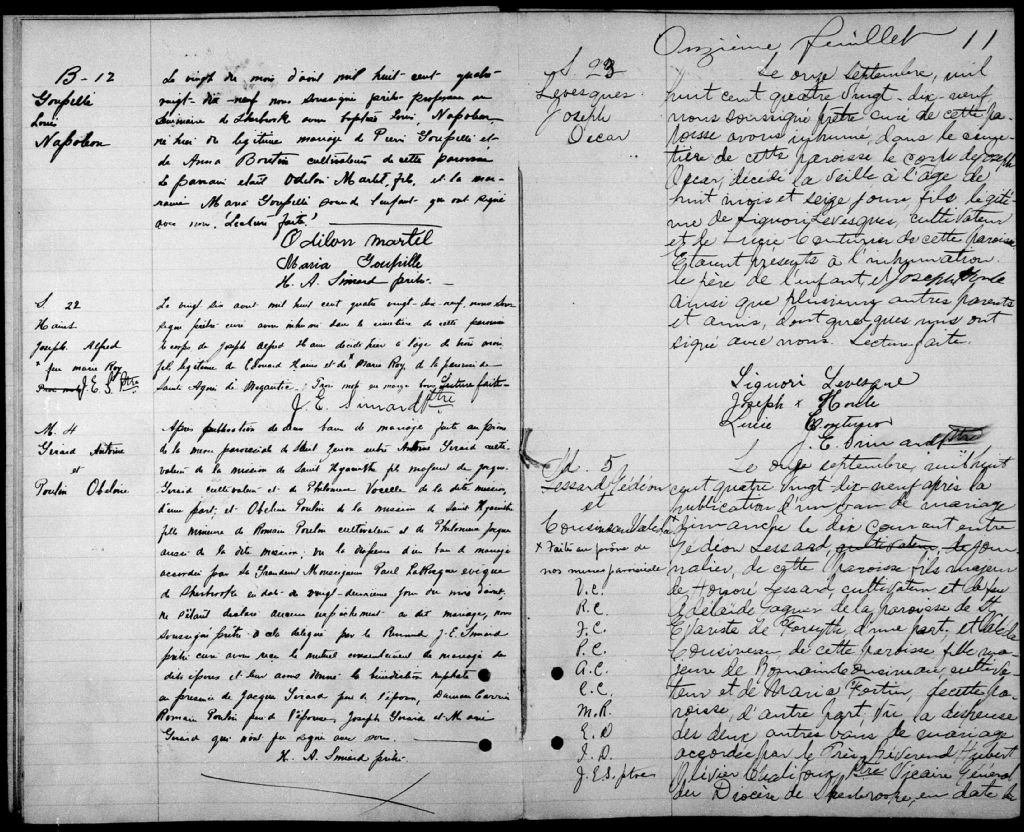 B - 12
Goupille
Louis
Napoléon
Le vingt du mois d'août mil huit-cent quatre
vingt-dix-neuf nous soussigné prêtre professeur au
séminaire de Sherbrooke avons baptisé Louis, Napoléon,
né hier du légitime mariage de Pierre Goupille et
de Anna Boutin cultivateur de cette paroisse
Le parrain était Odilon Martel, fils, et la mar-
raine Maria Goupille soeur de l'enfant qui ont signé
avec nous. Lecture faite.
Odilon Martel
Maria Goupille
H. A. Simard ptre.
S 22
Joseph Alfred
x feu marie Roy
J. E. S. Ptre
Le vingt six août mil huit cent quatre vingt-dix-neuf, nous sous-
signé prêtre curé avons inhumé dans le cimetière de cette paroisse
le corps de Joseph Alfred décédé hier à l'âge de trois mois
fils légitime de Edouard et de x Marie Roy de la paroisse de
Sainte Agnès de Mégantic. mot en marge bon. Lecture faite
J. E. Simard Ptre
M. 4
Gerard Antoine
et
Poulin Obeline
Après publication de deux bans de mariage faite au prône
de la messe paroissiale de Saint entre Antoine Gerard culti-
vateur de la mission de Saint Hyacinthe fils majeur de Jacques
Gerard cultivateur et de Philomène de la dite mission,
d'une part; et Obeline Poulin de la mission de Saint Hyacinthe
fille mineure de Romain Poulin cultivateur et de Philomène
aussi de la dite mission; vu la dispense d'un ban de mariage
accordée par Sa Grandeur Monseigneur Paul LaRocque évêque
de Sherbrooke en date du vingt-deuxième jour du mois d'août,
ne s'étant déclaré aucun empêchement au dit mariage, nous
soussigné prêtre à cela délégué par le Révérend J. E. Simard
prêtre curé avons reçu le mutuel consentement de mariage des
dits époux et leur avons donné la bénédiction nuptiale
en présence de Jacques Gerard père de l'époux, Damien
Romain Poulin père de l'épouse, Joseph Gerard et Marie
Gerard qui n'ont pu signer avec nous.
H. A. Simard ptre.
Onzième feuillet 11
S. 23
Levesques
Joseph
Oscar
Le onze septembre, mil
huit cent quatre vingt-dix-neuf
nous soussigné prêtre curé de cette pa-
roisse avons inhumé, dans le cime-
tière de cette paroisse le corps de Joseph
Oscar, décédé la veille à l'âge de
huit mois et seize jours fils légiti-
me de Liguori Levesques, cultivateur
et de Lucie Couturier de cette paroisse.
Étaient présents à l'inhumation
le père de l'enfant et Joseph Houle
ainsi que plusieurs autres parents
et amis, dont quelques uns ont
signé avec nous. Lecture faite.
Liguori Levesque
Joseph x Houle
Lucie Couturier
J. E. Simard Ptre
M. 5
Lessard Gédéon
et
Cousineau
x Faite au prône de
nos messes paroissiale
V. C.
R. C.
F. C.
P. C.
A. C.
E. C.
M. R.
E. D
I. D.
J. E. S. ptre
Le onze septembre, mil huit
cent quatre vingt dix-neuf après la
publication d'un ban de mariage
x Dimanche le dix courant entre
Gédéon Lessard, cultivateur, de jour-
nalier, de cette Paroisse fils majeur
de Honoré Lessard, cultivateur et de feu
Adélaïde de la paroisse de St
Evariste de Forsyth, d'une part, et
Cousineau de cette paroisse fille ma-
jeure de Romain Cousineau cultiva-
teur et de Maria Fortin, de cette pa-
roisse, d'autre part, Vu la dispense
des deux autres bans de mariage
accordée par le Très Révérend Hubert
Olivier Chalifoux Ptre Vicaire Général
du Diocèse de Sherbrooke, en date du